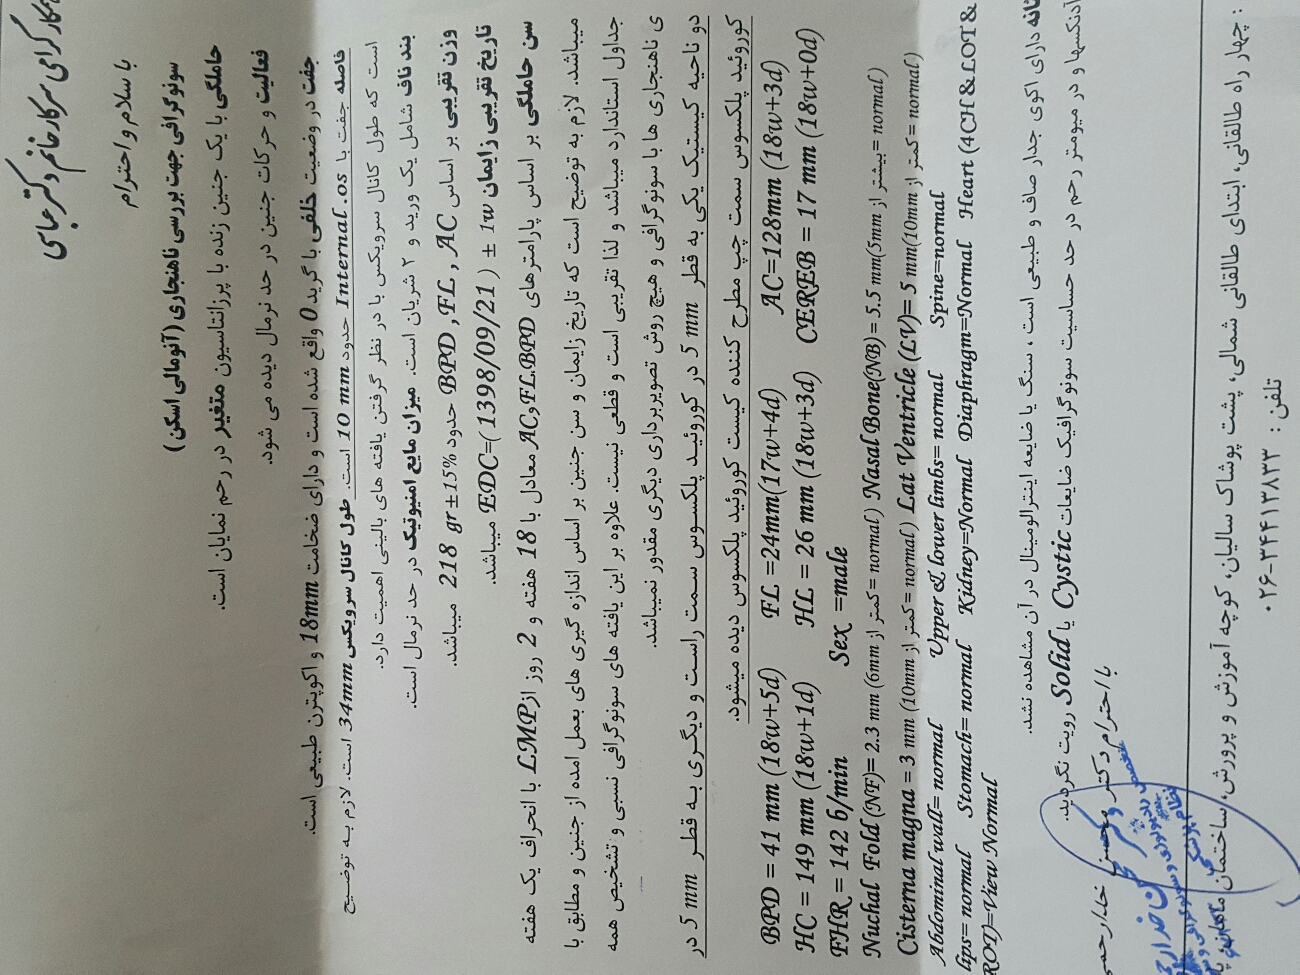 همکار گرامی سرکار خانم دکتر
با سلام و احترام
سونوگرافی جهت بررسی ناهنجاری (آنومالی اسکن)
حاملگی با یک جنین زنده با پرزانتاسیون متغیر در رحم نمایان است.
فعالیت و حرکات جنین در حد نرمال دیده می شود.
جفت در وضعیت خلفی با گرید 0 واقع شده است و دارای ضخامت 18mm و اکوپترن طبیعی است.
فاصله جفت با Internal.os حدود 10 mm است. طول کانال سرویکس 34mm است. لازم به توضیح
است که طول کانال سرویکس با در نظر گرفتن یافته های بالینی اهمیت دارد.
بند ناف شامل یک ورید و ۲ شریان است. میزان مایع امنیوتیک در حد نرمال است.
وزن تقریبی بر اساس BPD , FL , AC حدود 218 gr±15% میباشد.
تاریخ تقریبی زایمان EDC=( 1398/09/21 ) ± 1w میباشد.
سن حاملگی بر اساس پارامترهای AC و FL.BPD معادل با 18 هفته و 2 روز از LMP با انحراف یک هفته
میباشد. لازم به توضیح است که تاریخ زایمان و سن جنین بر اساس اندازه گیری های بعمل امده از جنین و مطابق با
جداول استاندارد میباشد و لذا تقریبی است و قطعی نیست. علاوه بر این یافته های سونوگرافی نسبی و تشخیص همه
ی ناهنجاری ها با سونوگرافی و هیچ روش تصویربرداری دیگری مقدور نمیباشد.
دو ناحیه کیستیک یکی به قطر 5 mm در کوروئید پلکسوس سمت راست و دیگری به قطر 5 mm در
کوروئید پلکسوس سمت چپ مطرح کننده کیست کوروئید پلکسوس دیده میشود.
BPD = 41 mm (18w+5d) FL =24mm(17w+4d) AC=128mm (18w+3d)
HC = 149 mm (18w+1d) HL = 26 mm (18w+3d) CEREB = 17 mm (18w+0d)
FHR = 142 b/min Sex =male
Nuchal Fold (NF)= 2.3 mm (6mm کمتر از = normal) Nasal Bone(NB) = 5.5 mm(5mm بیشتر از = normal)
Cisterna magna = 3 mm (10mm کمتر از = normal) Lat Ventricle (LV)= 5 mm(10mm کمتر از = normal)
Abdominal wall= normal Upper & lower limbs= normal Spine=normal
lips= normal Stomach= normal Kidney=Normal Diaphragm=Normal Heart (4CH &LOT&
ROT)=View Normal
دارای اکوی جدار صاف و طبیعی است ، سنگ یا ضایعه اینترالومینال در آن مشاهده نشد.
آدنکسها و در میومتر رحم در حد حساسیت سونوگرافیک ضایعات Cystic یا Solid رویت نگردید.
با احترام دکتر محسن
: چهار راه طالقانی، ابتدای طالقانی شمالی، پشت پوشاک سالیان، کوچه آموزش و پرورش، ساختمان
تلفن : ۳۴۴۱۳۸۳۳-۰۲۶